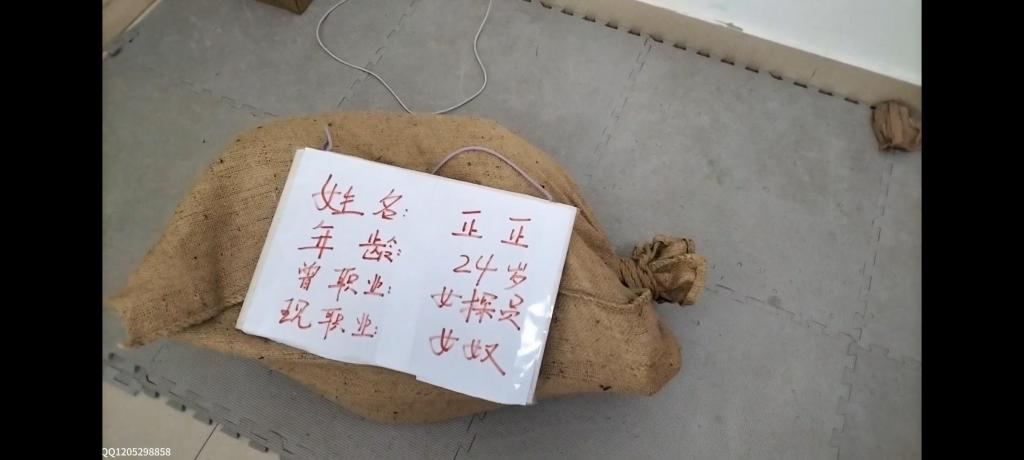 姓名: 正正
年龄: 24岁
曾职业: 女探员
现职业: 女奴
QQ1205298858